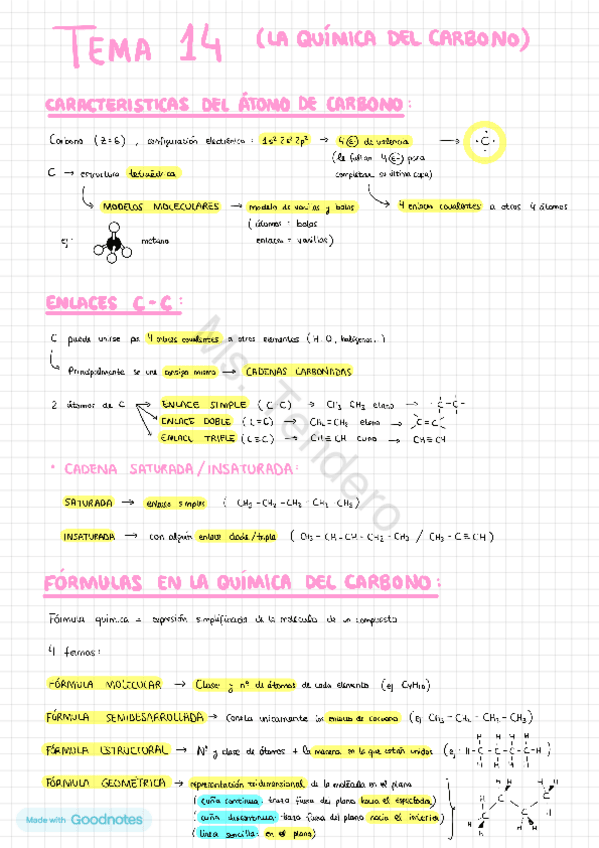 TEMA 14 (LA QUÍMICA DEL CARBONO)
CARACTERISTICAS DEL ÁTOMO DE CARBONO:
Carbono (Z=6), configuración electrónica: 1s² 2s² 2p² → 4(e-) de valencia → C
(le faltan 4(e-) para
completar su última capa)
C → estructura tetraédrica
MODELOS MOLECULARES → modelo de varillas y bolas
4 enlaces covalentes a otros 4 átomos
(átomos = bolas
enlaces = varillas)
ej: metano
ENLACES C-C:
C puede unirse por 4 enlaces covalentes a otros elementos (H, O, halógenos..)
Principalmente se une consigo mismo → CADENAS CARBONADAS
2 átomos de C → ENLACE SIMPLE (C-C) → CH3-CH3 etano → -C-C-
ENLACE DOBLE (C=C) → CH2=CH2 eteno → C=C
ENLACE TRIPLE (C≡C) → CH≡CH → CH≡CH
* CADENA SATURADA/INSATURADA:
SATURADA → enlaces simples (CH3-CH2-CH2-CH2-CH3)
INSATURADA → con algún enlace doble/triple (CH3-CH=CH-CH2-CH3 / CH3-C≡CH)
FÓRMULAS EN LA QUÍMICA DEL CARBONO:
Fórmula química = expresión simplificada de la molécula de un compuesto
4 formas:
FÓRMULA MOLECULAR → Clase y nº de átomos de cada elemento (ej C4H10)
FÓRMULA SEMIDESARROLLADA → únicamente los enlaces de carbono (ej CH3-CH2-CH2-CH3)
FÓRMULA ESTRUCTURAL → Nº y clase de átomos + la manera en la que están unidos (ej: H-C-C-C-C-H)
H H H H
H H H H
FÓRMULA GEOMÉTRICA → representación tridimensional de la molécula en el plano
(cuña continua: trazo fuera del plano hacia el espectador)
(cuña discontinua: trazo fuera del plano hacia el interior)
(línea sencilla: en el plano)
Ms. Tendero
Made with Goodnotes